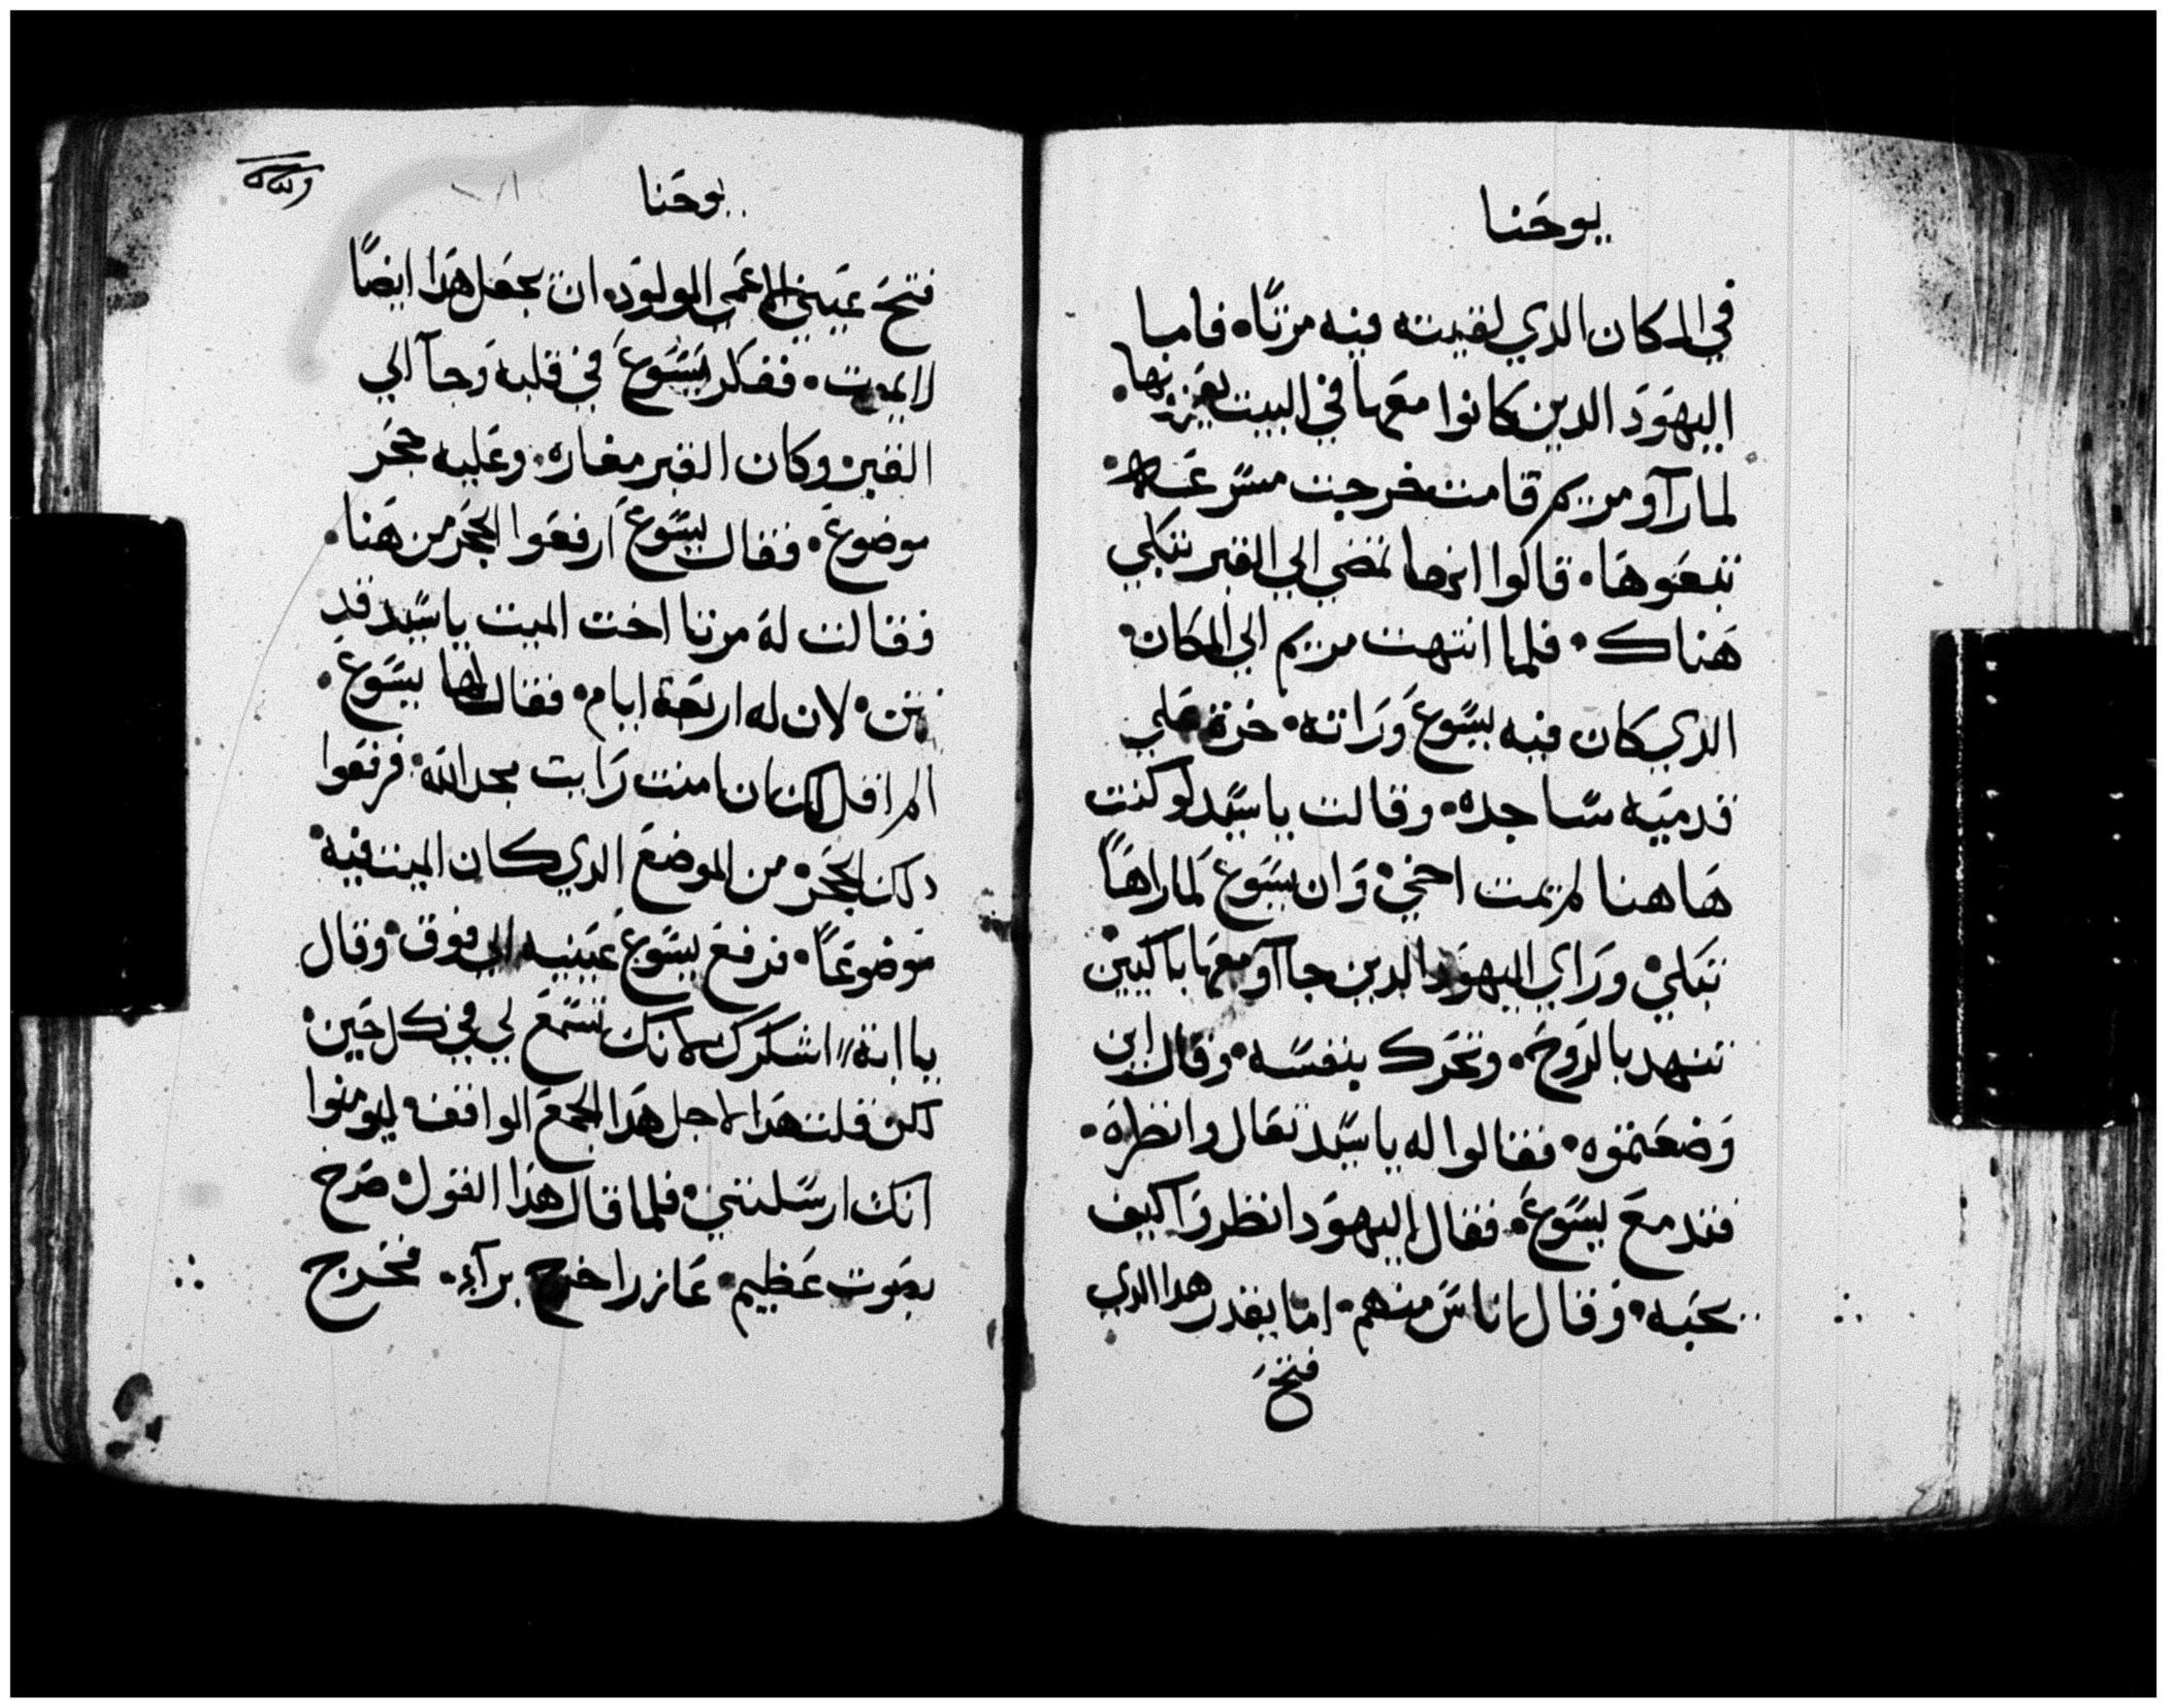 يوحنا
في المكان الدي لقيته فيه مرتا، فاما
اليهود الدين كانوا معها في البيت يعزونها.
لما رآو مريم قامت خرجت مسرعه.
تبعوها. قالوا انها تمضي الي القبر تبكي
هناك. فلما انتهت مريم الي المكان.
الدي كان فيه يسوع وراته. خرة علي
قدميه ساجده. وقالت يا سيد لو كنت
هاهنا لم يمت اخي. وان يسوع لما راها
تبكي. وراي اليهود الدين جاآو معها باكيين.
تنهد بالروح. وتحرك بنفسه. وقال اين
وضعتموه. فقالوا له يا سيد تعال وانظره.
فتدمع يسوع. فقال اليهود انظروا كيف
يحبه. وقال اناس منهم. اما يقدر هدا الدي
فتح
يوحنا
فتح عيني الاعمي المولود. ان يجعل هدا ايضًا
لا يموت. ففكر يسوع في قلبه وجآ الي
القبر. وكان القبر مغاره. وعليه حجر
موضوع. فقال يسوع ارفعوا الحجر من هنا.
فقالت له مرتا اخت الميت يا سيد قد
نتن. لان له اربعة ايام. فقال لها يسوع.
الم اقل لك ان امنت رايت مجد الله. فرفعوا
دلك الحجر. من الموضع الدي كان الميت فيه.
موضوعًا. فرفع يسوع عينيه الي فوق. وقال
يا ابة اشكرك لانك تسمع لي في كل حين.
لكن قلت هدا لاجل هدا الجمع الواقف ليومنوا
انك ارسلتني. فلما قال هدا القول. صرخ
بصوت عظيم. عازر اخرج برآء. فخرج